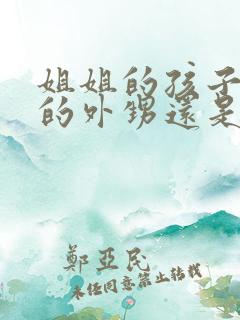 姐姐的孩子
的外甥還是
鄭亞民
未任同意禁止转载